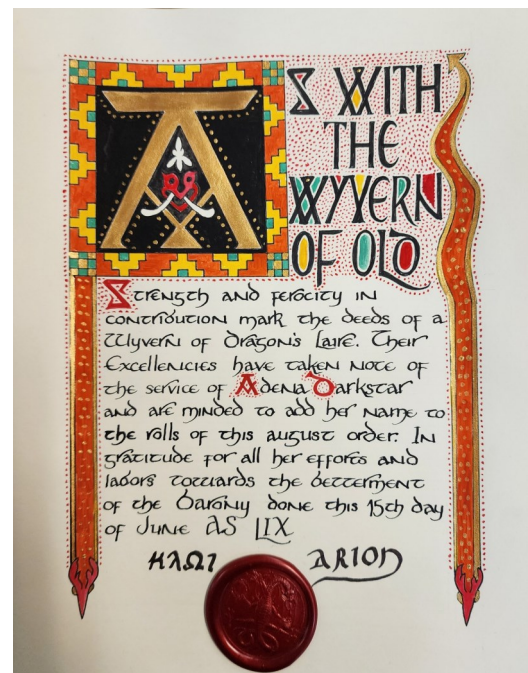 AS WITH
THE
WYVERN
OF OLD
Strength and ferocity in
contribution mark the deeds of a
Wyvern of Dragon's Laire. Their
Excellencies have taken note of
the service of Adena Darkstar
and are minded to add her name to
the rolls of this august order. In
gratitude for all her efforts and
labors towards the betterment
of the Barony done this 15th day
of June AS LIX
ARION